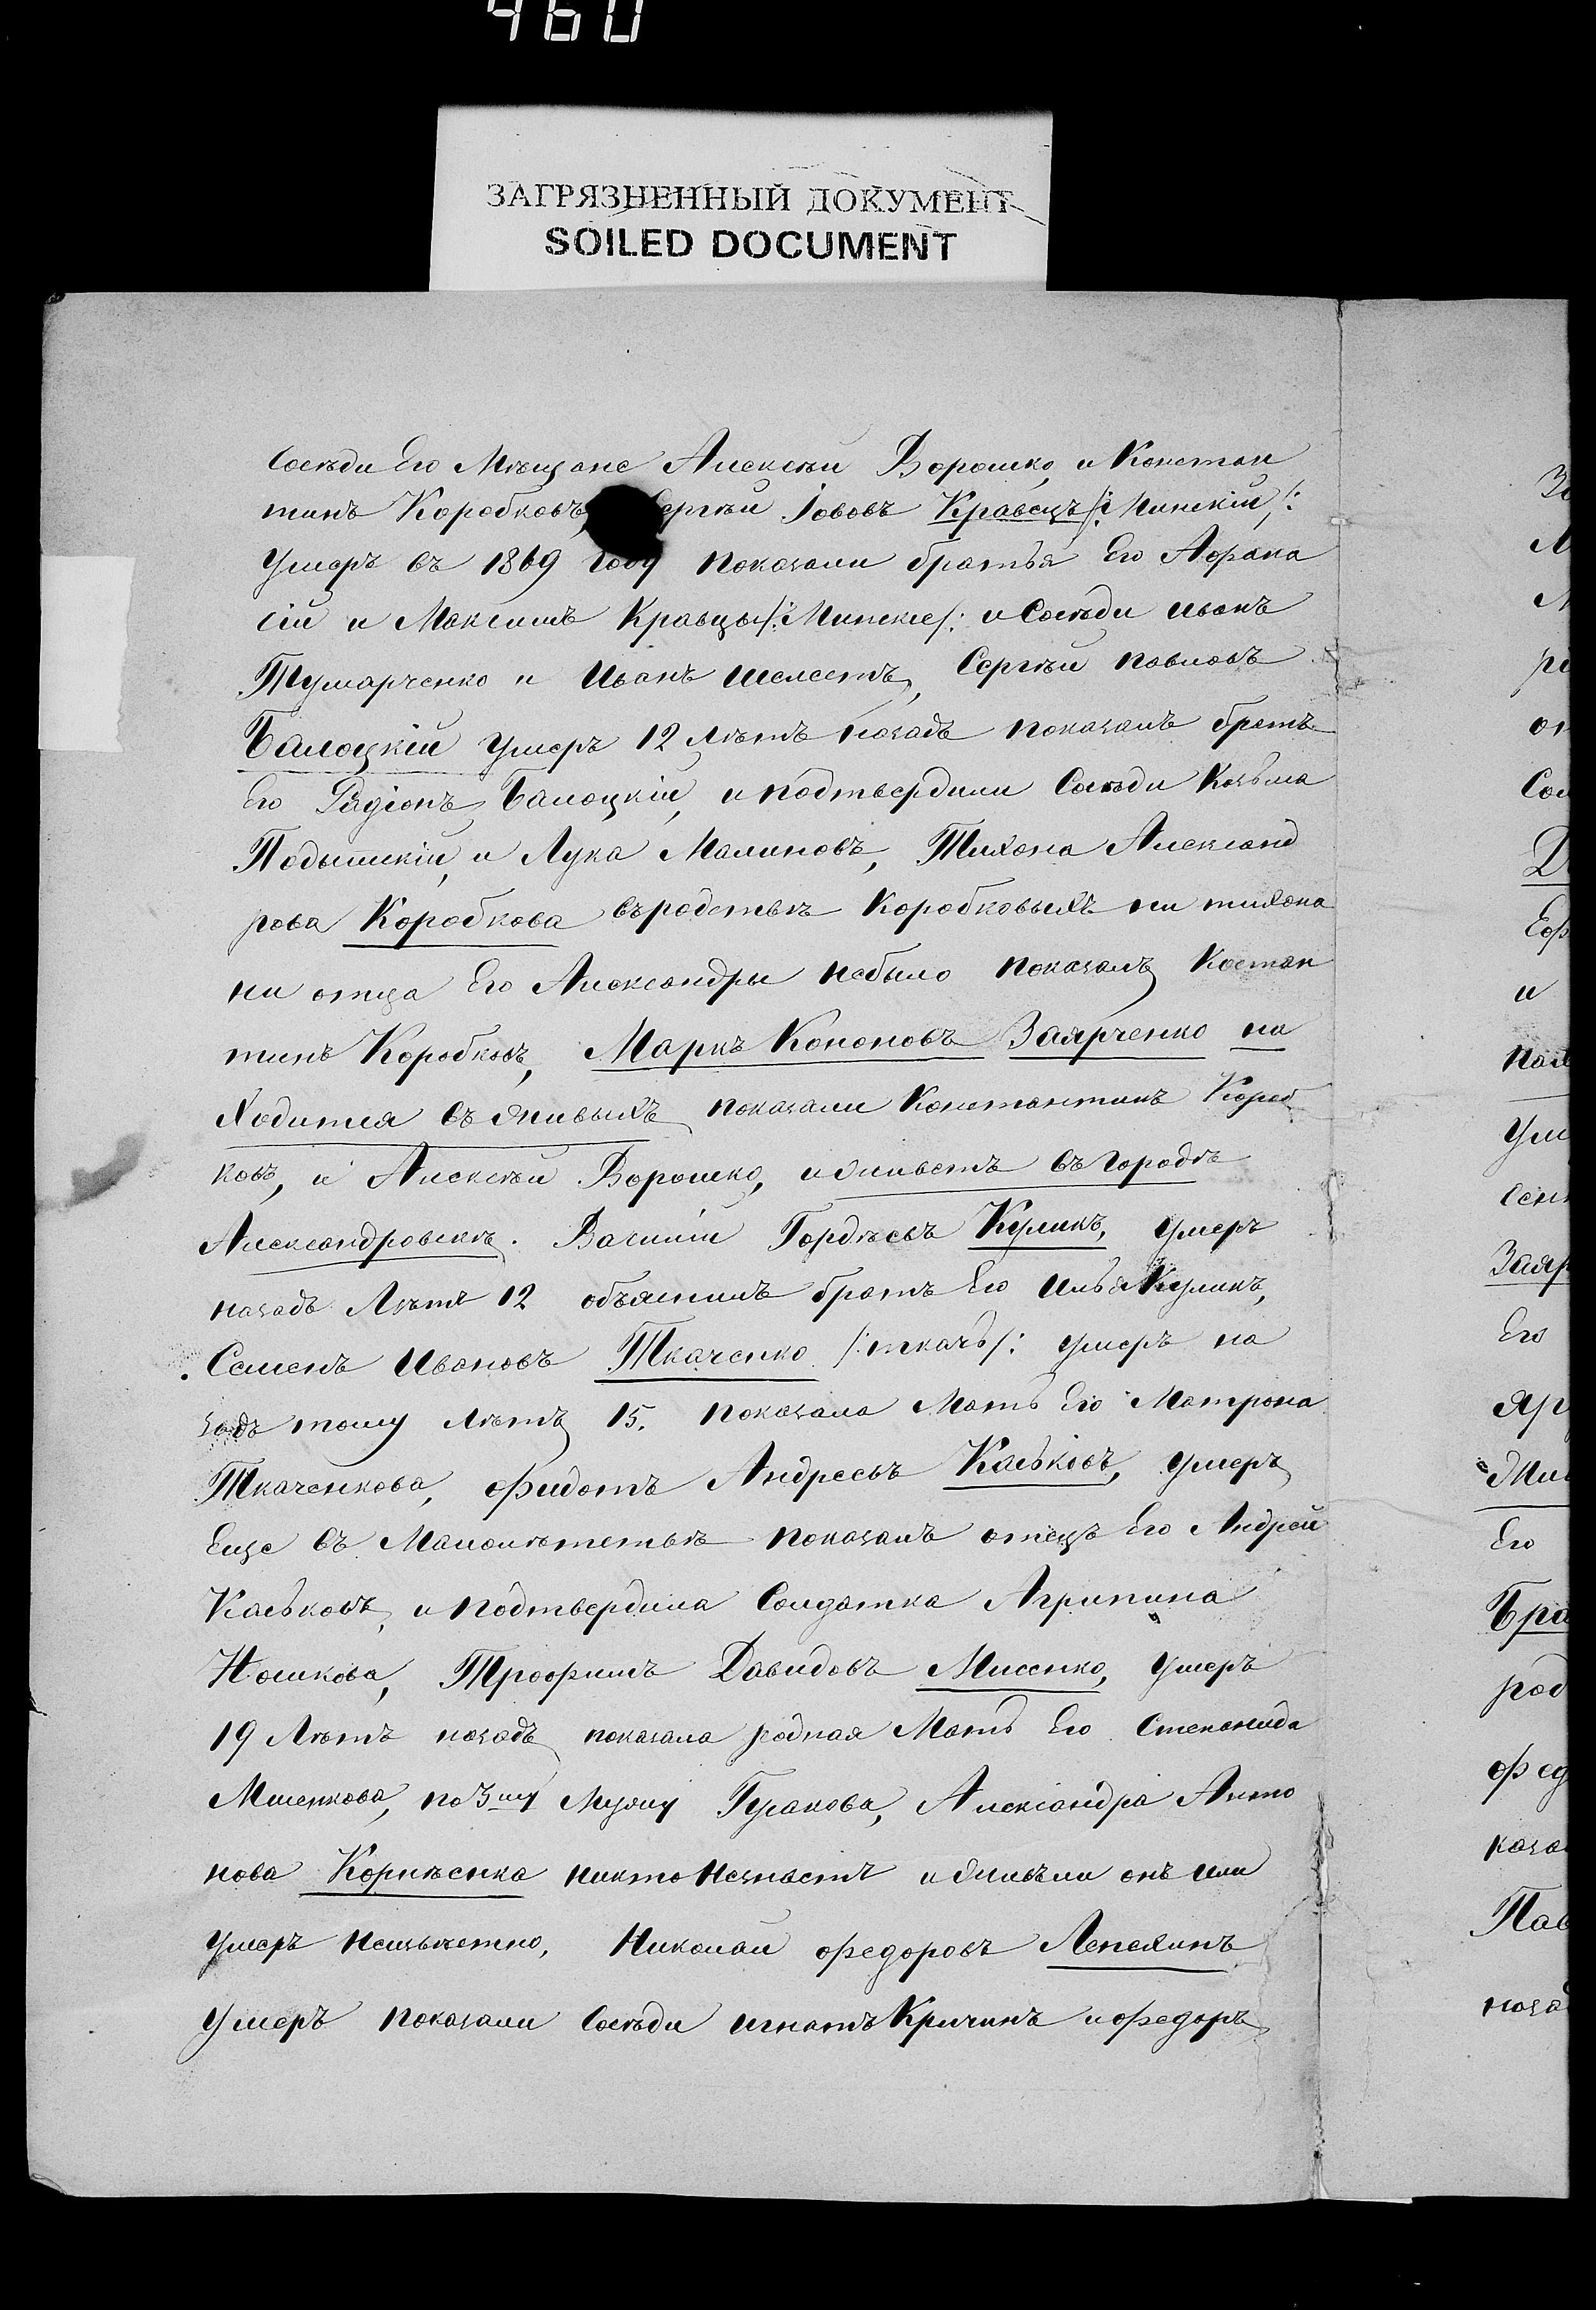 460
ЗАГРЯЗНЕННЫЙ ДОКУМЕНТ
SOILED DOCUMENT
Сосѣди Его Мѣщане Алексѣй Ворошко, и Констан
тинъ Коробковъ, Сергѣй Іововъ Кравецъ /: Минскій /:
Умеръ въ 1869 году показали братья Его Афана
сій и Максимъ Кравцы /: Минскіе /: и Сосѣди иванъ
Тумарченко и Иванъ шелестъ, Сергѣй павловъ
Балоцкій умеръ 12 лѣтъ назадъ показалъ братъ
Его Радіонъ Балоцкій, и подтвердили Сосѣди Козьма
и Лука Малиновъ, Тихона Александ
рова Коробкова въродствѣ Коробковыхъ ни тихона
ни отца Его Александры небыло показалъ Костан
тинъ Коробковъ, Маркъ Кононовъ Заярченко на
ходится въ живыхъ показали Константинъ Короб
ковъ, и Алексѣй Ворошко, и живетъ въ городѣ
Александровскѣ. Василій Гордѣевъ Куликъ, умеръ
назадъ Лѣтъ 12 объяснилъ братъ Его Илья Куликъ,
Семенъ Ивановъ Ткаченко /: ткачь /: умеръ на
задъ тому лѣтъ 15. показала Мать Его Матрона
Ткаченкова, Федотъ Андреевъ Каськовъ, умеръ
Еще въ Малолѣтствѣ показалъ отецъ Его Андрей
Каськовъ, и подтвердила Солдатка Агрипина
Ношкова, Трофимъ Давидовъ Мисенко, умеръ
19 Лѣтъ назадъ показала родная Мать Его Степанида
Мисенкова, по 3му Мужу Гуракова, Александра Анто
нова Корнѣенка никто незнаетъ и живъли онъ или
умеръ неизвѣстно, Николай Федоровъ Лепехинъ
умеръ показали Сосѣди игнатъ Кричинъ и Федоръ